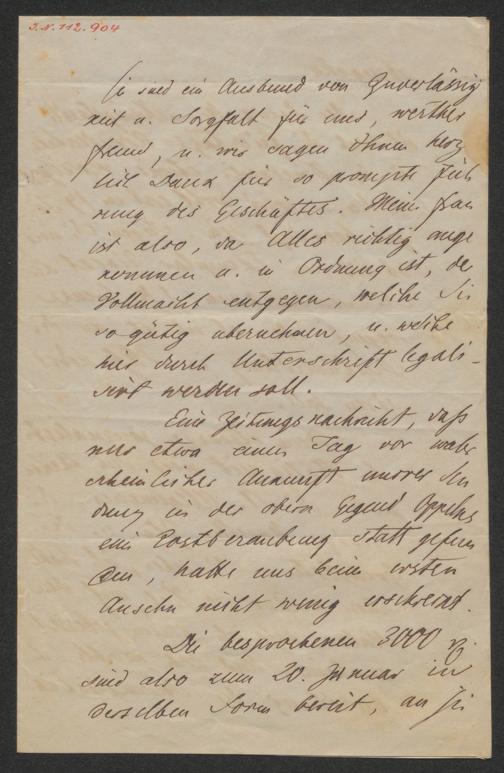 I.N. 112.904
Sie sind ein Ausbund von Zuverlässig
keit u. Sorgfalt für uns, werther
Freund, u. wir sagen Ihnen herz
lich Dank für so prompte Füh
rung des Geschäftes. Meine Frau
ist also, da Alles richtig ange
kommen u. in Ordnung ist, der
Vollmacht entgegen, welche Sie
so gütig übernehmen, u. welche
hier durch Unterschrift legali-
sirt werden soll.
Eine Zeitungsnachricht, daß
nur etwa einen Tag vor wahr
scheinlicher Ankunft unsrer Sen
dung in der obern Gegend Oppelns
eine Postberaubung statt gefun
den, hatte uns beim ersten
Ansehn nicht wenig erschreckt.
Die besprochenen 3000
sind also zum 20. Januar in
derselben Form bereit, an Sie